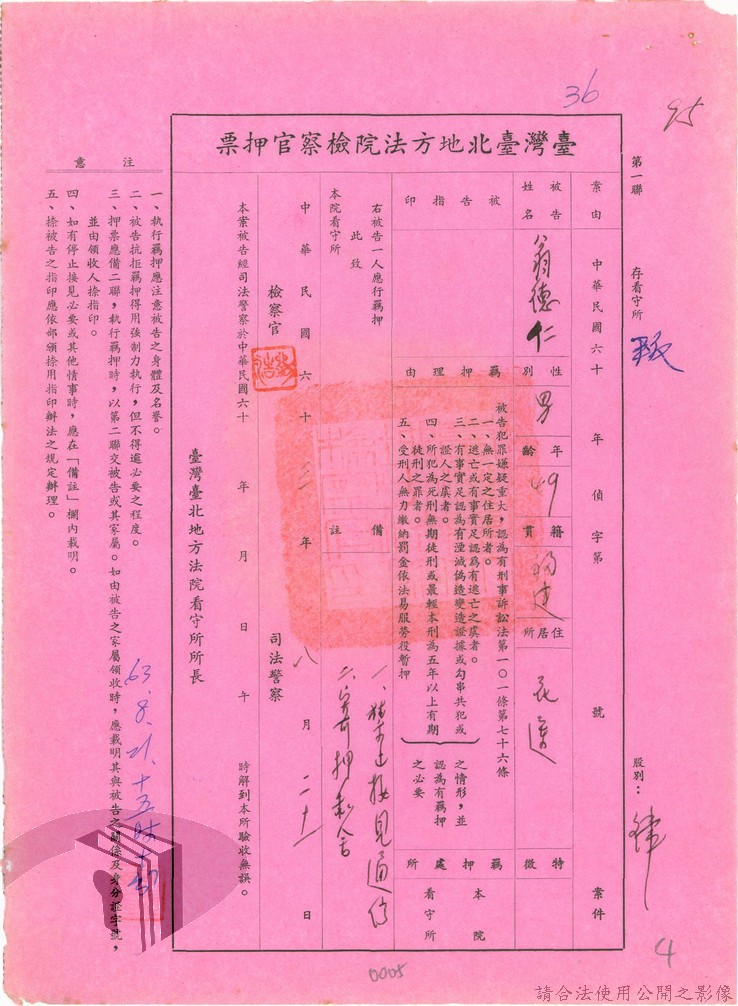 36
95
第一聯　存看守所
股別：
臺灣臺北地方法院檢察官押票
案由　中華民國六十　年　偵字第　號　案件
被告姓名　翁德仁　性別　男　年齡　49　籍貫　福建　住居所　花蓮　特徵
被告指印
羈押理由
被告犯罪嫌疑重大，認為有刑事訴訟法第一〇一條第七十六條
一、無一定之住居所者。
二、逃亡或有事實足認為有逃亡之虞者。
三、有事實足認為有湮滅偽造變造證據或勾串共犯或證人之虞者。
四、所犯為死刑無期徒刑或最輕本刑為五年以上有期徒刑之罪者。
五、受刑人無力繳納罰金依法易服勞役暫押
之情形，並認為有羈押之必要
羈押處所　本院看守所
右被告一人應行羈押
此致
本院看守所
備註
一、禁止接見通信
二、
中華民國六十三年八月二十一日
檢察官
司法警察
本案被告經司法警察於中華民國六十　年　月　日　午　時解到本所驗收無誤。
臺灣臺北地方法院看守所所長
63.8.21.十五時十
注意
一、執行羈押應注意被告之身體及名譽。
二、被告抗拒羈押得用強制力執行，但不得逾必要之程度。
三、押票應備二聯，執行羈押時，以第二聯交被告或其家屬。如由被告之家屬領收時，應載明其與被告之關係及身分証字號，
並由領收人捺指印。
四、如有停止接見必要或其他情事時，應在「備註」欄內載明。
五、捺被告之指印應依部頒捺用指印辦法之規定辦理。
4
0005
請合法使用公開之影像